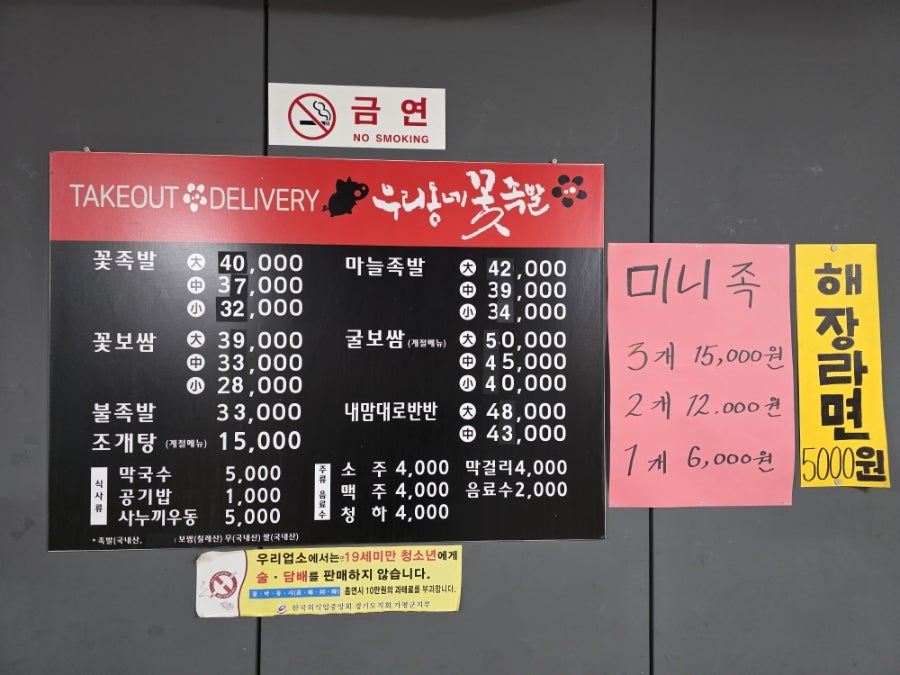 금연
NO SMOKING
TAKEOUT DELIVERY 우리동네 꽃족발
꽃족발 大 40,000
中 37,000
小 32,000
꽃보쌈 大 39,000
中 33,000
小 28,000
불족발 33,000
조개탕 (계절메뉴) 15,000
식사류
막국수 5,000
공기밥 1,000
사누끼우동 5,000
마늘족발 大 42,000
中 39,000
小 34,000
굴보쌈 (계절메뉴) 大 50,000
中 45,000
小 40,000
내맘대로반반 大 48,000
中 43,000
주류 음료수
소주 4,000 막걸리 4,000
맥주 4,000 음료수 2,000
청하 4,000
*족발(국내산, 보쌈(칠레산) 무(국내산) 쌀(국내산)
미니 족
3개 15,000원
2개 12.000원
1개 6,000원
해장라면
5000원
우리업소에서는 19세미만 청소년에게
술·담배를 판매하지 않습니다.
흡연시 10만원의 과태료를 부과합니다.
한국외식업중앙회 경기도지회 가평군지부